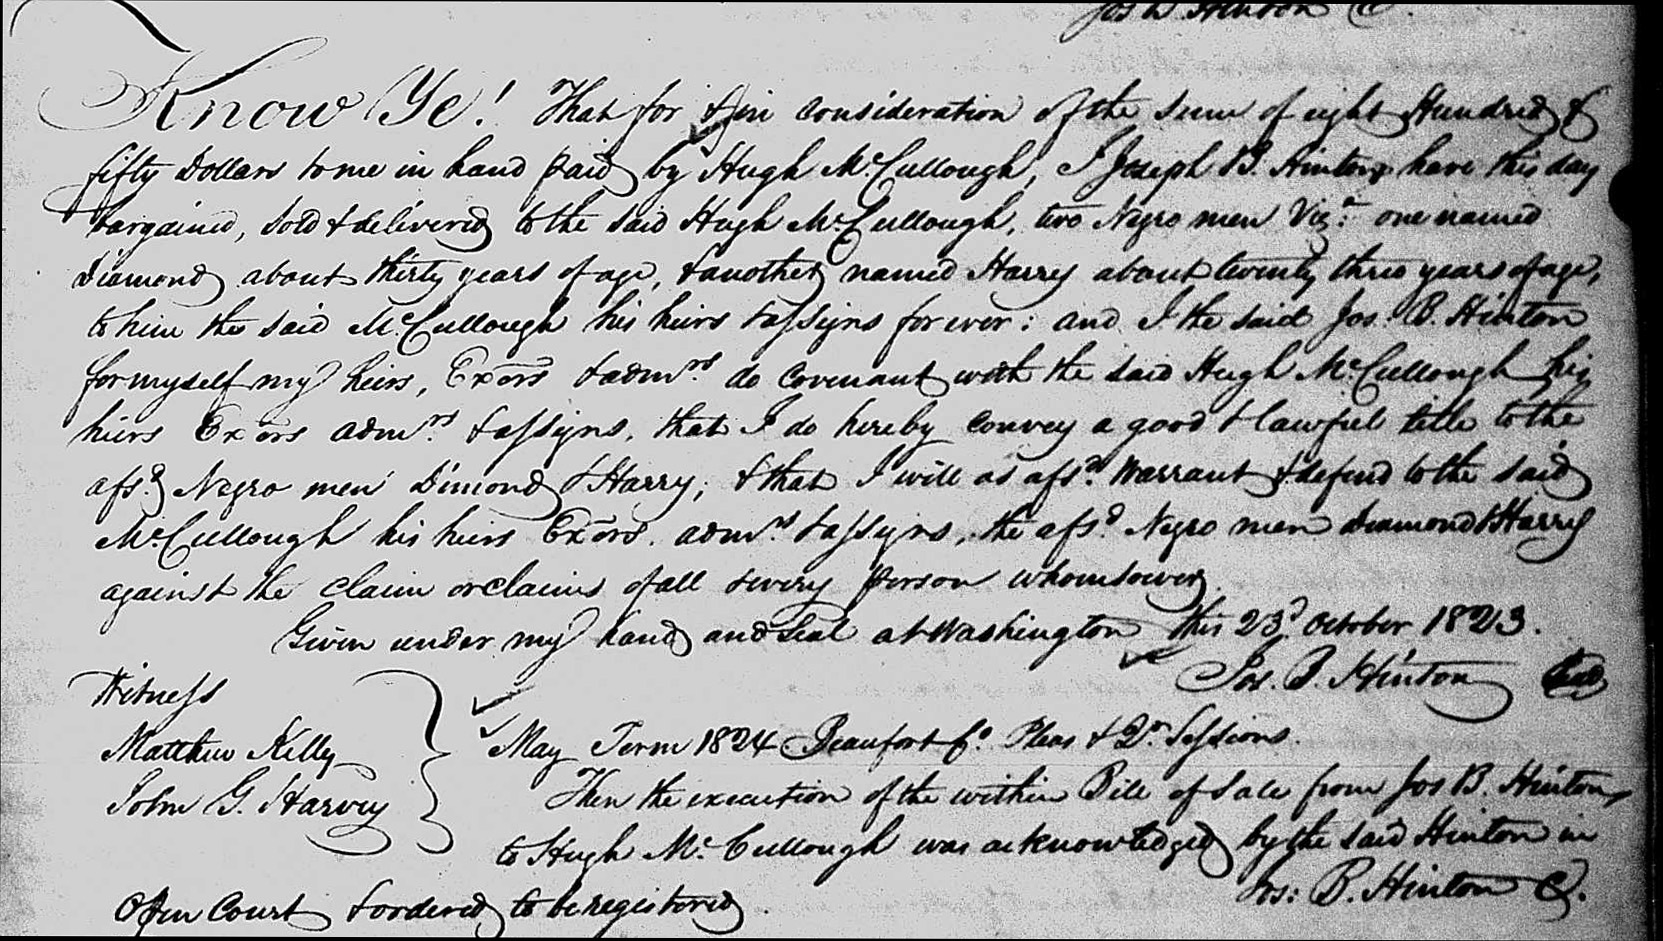 Jos B. Hinton C.
Know Ye! That for & in consideration of the sum of eight Hundred &
fifty Dollars to me in hand paid by Hugh McCullough, I Joseph B. Hinton have this day
bargained, sold & delivered to the said Hugh McCullough, two Negro men Viz: one named
Diamond about thirty years of age, & another named Harry about twenty three years of age,
to him the said McCullough his heirs & assigns forever: and I the said Jos. B. Hinton
for myself my heirs, Exors & admrs do covenant with the said Hugh McCullough his
heirs Exors admrs & assigns, that I do hereby convey a good & lawful title to the
afsd Negro men Dimond & Harry; & that I will as afsd warrant & defend to the said
McCullough his heirs Exors. admrs & assigns, the afsd Negro men Diamond & Harry
against the claim or claims of all & every person whomsoever
Given under my hand and Seal at Washington this 23d October 1823.
Jos. B. Hinton Seal
Witness
Matthew Kelly
John G. Harvey
May Term 1824 Beaufort Co. Pleas & Qr Sessions.
Then the execution of the within Bill of Sale from Jos B. Hinton
to Hugh McCullough was acknowledged by the said Hinton in
Open Court & ordered to be registered.
Jos: B. Hinton C.